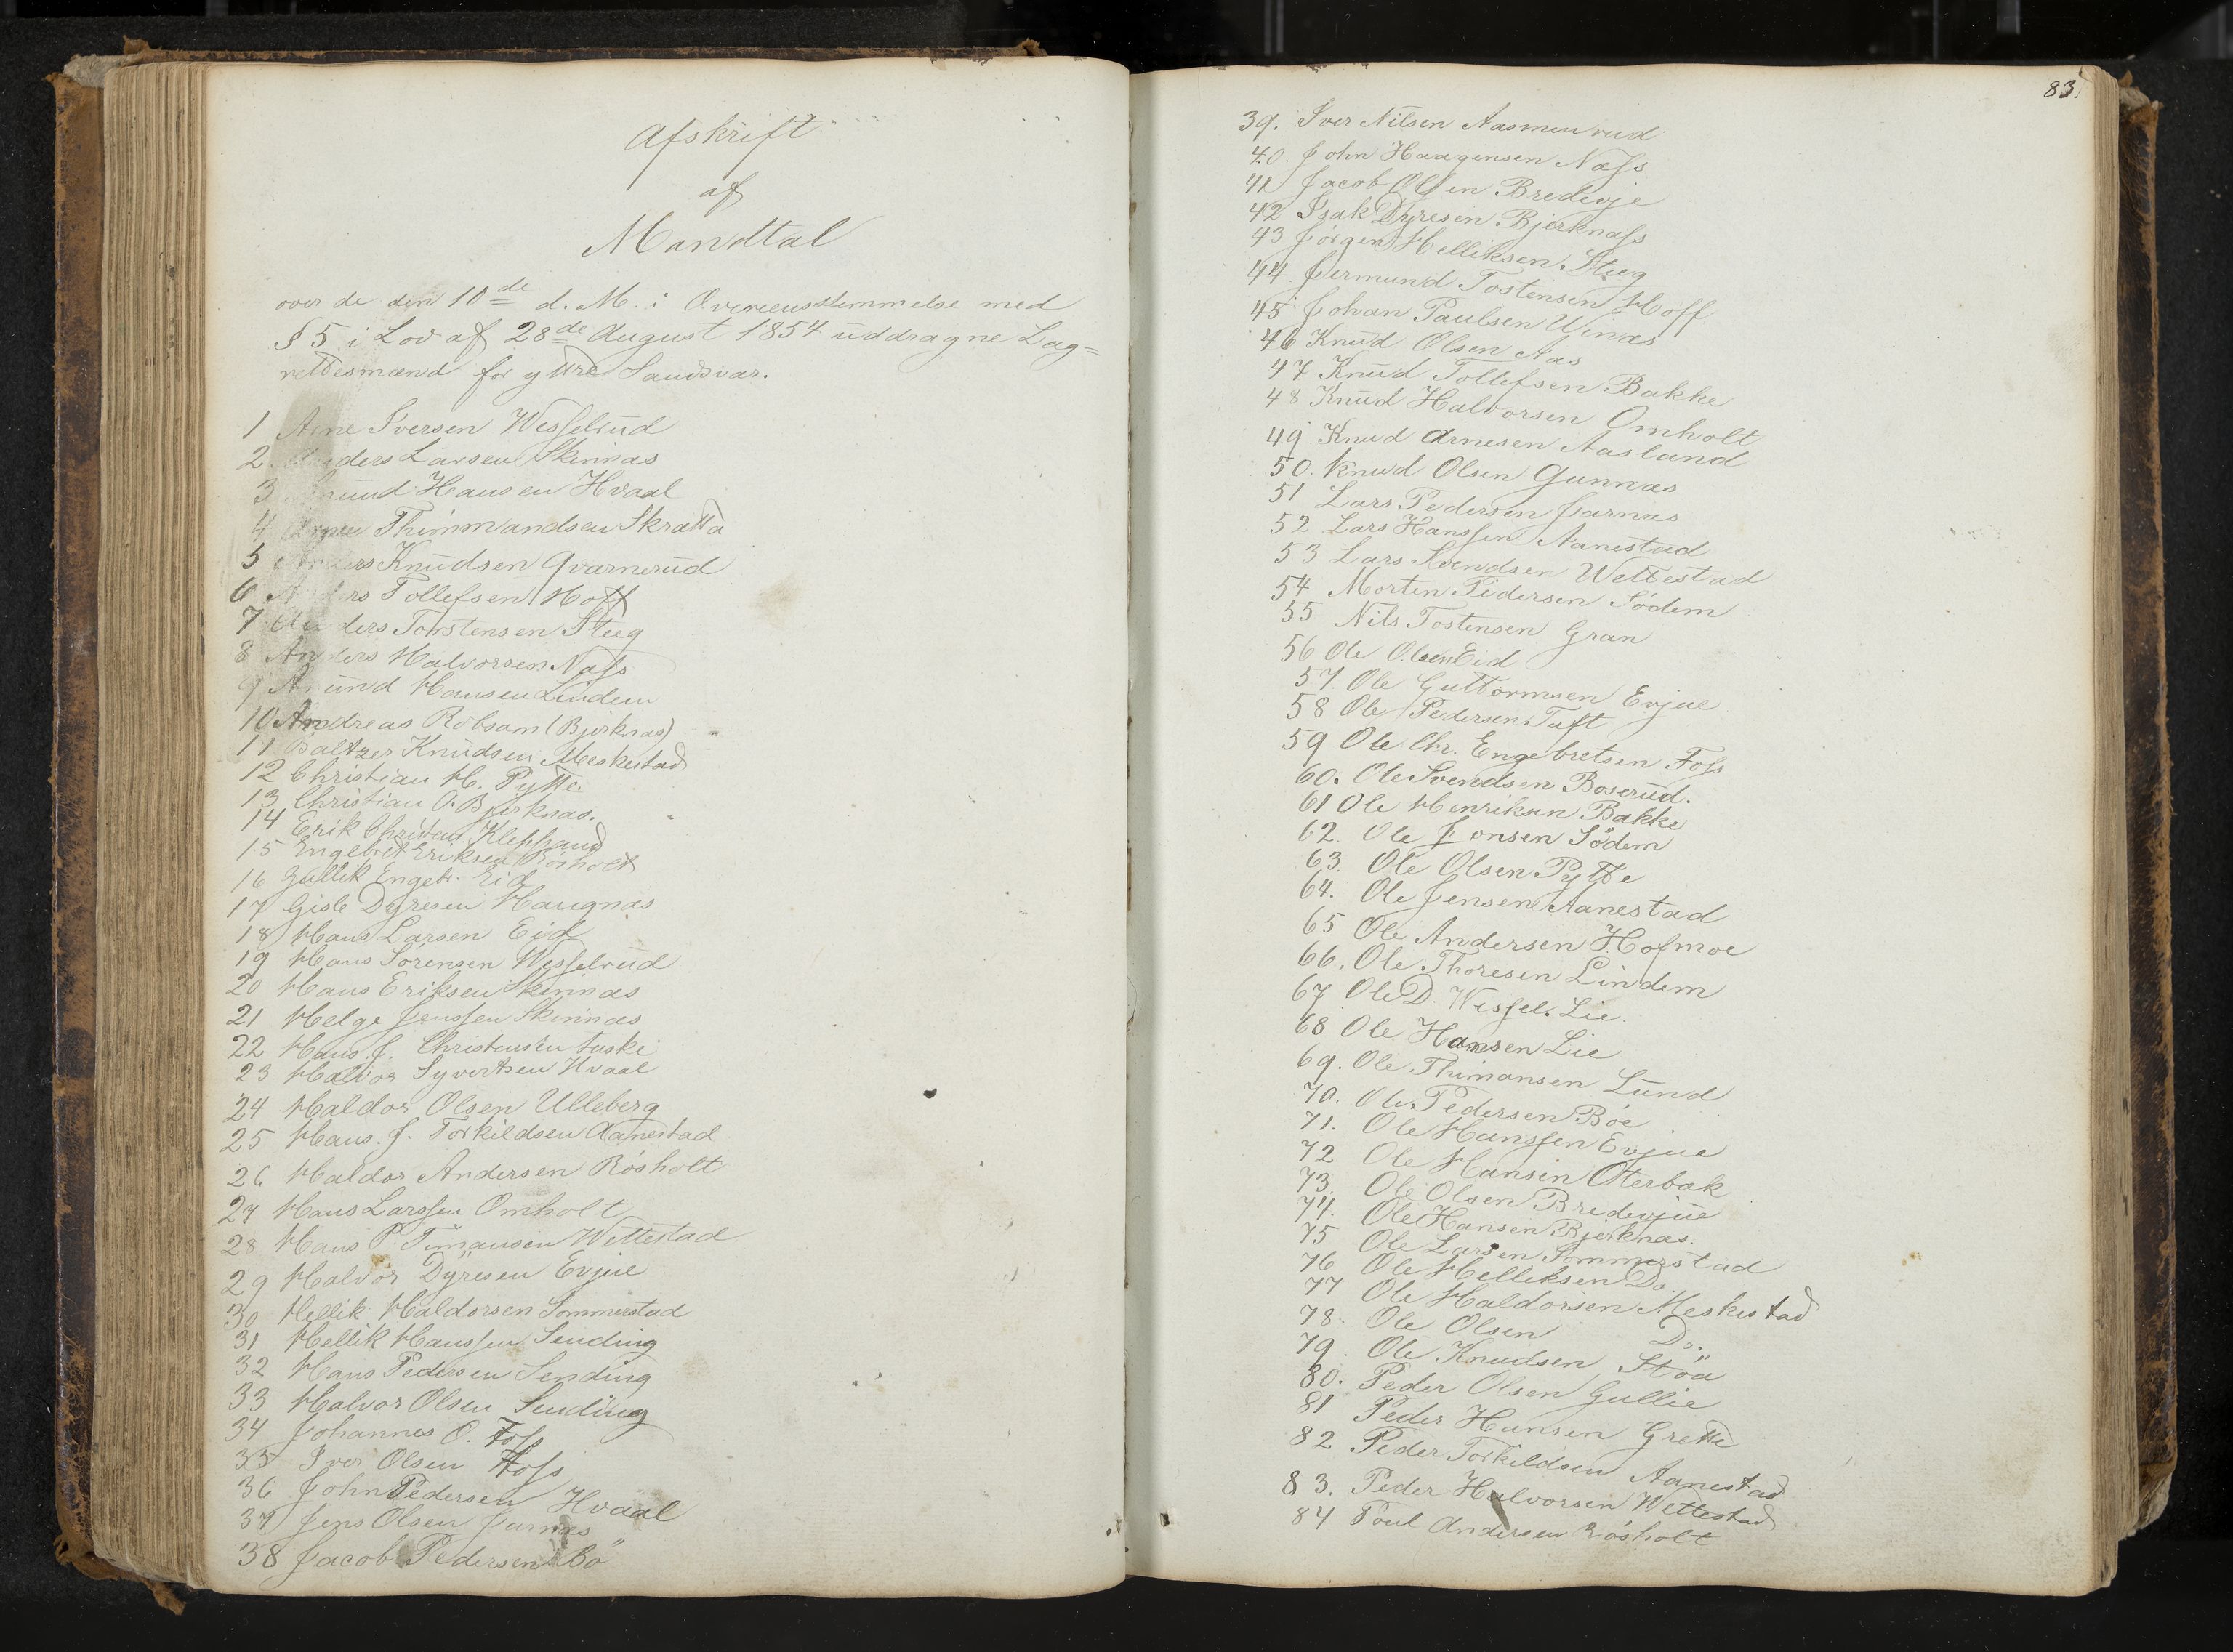 Afskrift
af
Mandtal
over de den 10de d. M. i Overeensstemmelse med
§ 5 i Lov af 28de August 1854 uddragne Lag=
rettesmænd for yttre Sandsvær.
1 Arne Iversen Wesselrud
2. Anders Larsen Skinnæs
3 Hansen Hvaal
4 Thimmandsen Skratta
5 Anders Knudsen Qvarnerud
6 Anders Tollefsen Hoff
7 Anders Torstensen Steeg
8 Anders Halvorsen Næss
9 Amund Hansen Lindem
10 Andreas Robsam (Bjerknæs)
11 Baltzer Knudsen Meskestad
12 Christian H. Pytte
13 Christian O. Bjerknæs.
14 Erik Christens. Kleppand
15 Engebret Eriksen Rösholt
16 Gullik Engebr. Eid
17 Gisle Dyresen Haugnæs
18 Hans Larsen Eid
19 Hans Sörensen Wesselrud
20 Hans Eriksen Skinnæs
21 Helge Jenssen Skinnæs
22 Hans J. Christensen
23 Halvor Syvertsen Hvaal
24 Haldor Olsen Ulleberg
25 Hans. J. Torkildsen Aanestad
26 Haldor Andersen Rösholt
27 Hans Larssen Omholt
28 Hans P. Timansen Wettestad
29 Halvor Dyresen Evjue
30 Hellik Haldorsen Sommerstad
31 Hellik Hanssen Sending
32 Hans Pedersen Sending
33 Halvor Olsen Sending
34 Johannes O. Foss
35 Iver Olsen Foss
36 John Pedersen Hvaal
37 Jens Olsen Jarnæs
38 Jacob Pedersen Bö
83.
39. Iver Nilsen Aasmunrud
40. John Haagensen Næss
41 Jacob Olsen Bredevje
42 Isak Dyresen Bjerknæss
43 Jörgen Helliksen Steeg
44. Jermund Tostensen Hoff
45 Johan Paulsen
46 Knud Olsen Aas
47 Knud Tollefsen Bakke
48 Knud Halvorsen Omholt
49 Knud Arnesen Aasland
50. Knud Olsen Gunnæs
51 Lars Pedersen Jarnæs
52 Lars Hanssen Aanestad
53 Lars Svendsen Wettestad
54 Morten Pedersen Södem
55 Nils Tostensen Gran
56 Ole Olsen Eid
57. Ole Guttormsen Evjue
58 Ole Pedersen Tuft
59 Ole Chr. Engebretsen Foss
60. Ole Svendsen Boserud.
61 Ole Henriksen Bakke
62. Ole Jonsen Södem
63. Ole Olsen Pytte
64. Ole Jensen Aanestad
65 Ole Andersen Hofmoe
66. Ole Thoresen Lindem
67 Ole D. Wessel. Lie.
68 Ole Hansen Lie
69. Ole Thimansen Lund
70. Ole Pedersen Böe
71. Ole Hanssen Evjue
72 Ole Hansen Oterbæk
73. Ole Olsen Bredevjue
74. Ole Hansen Bjerknæs.
75 Ole Larsen Sommerstad
76 Ole Helliksen Do.
77 Ole Haldorsen Meskestad
78. Ole Olsen Do.
79. Ole Knudsen Stöa
80. Peder Olsen Gullie
81 Peder Hansen Grette
82 Peder Torkildsen Aanestad
83. Peder Halvorsen Wettestad
84 Poul Andersen Rösholt